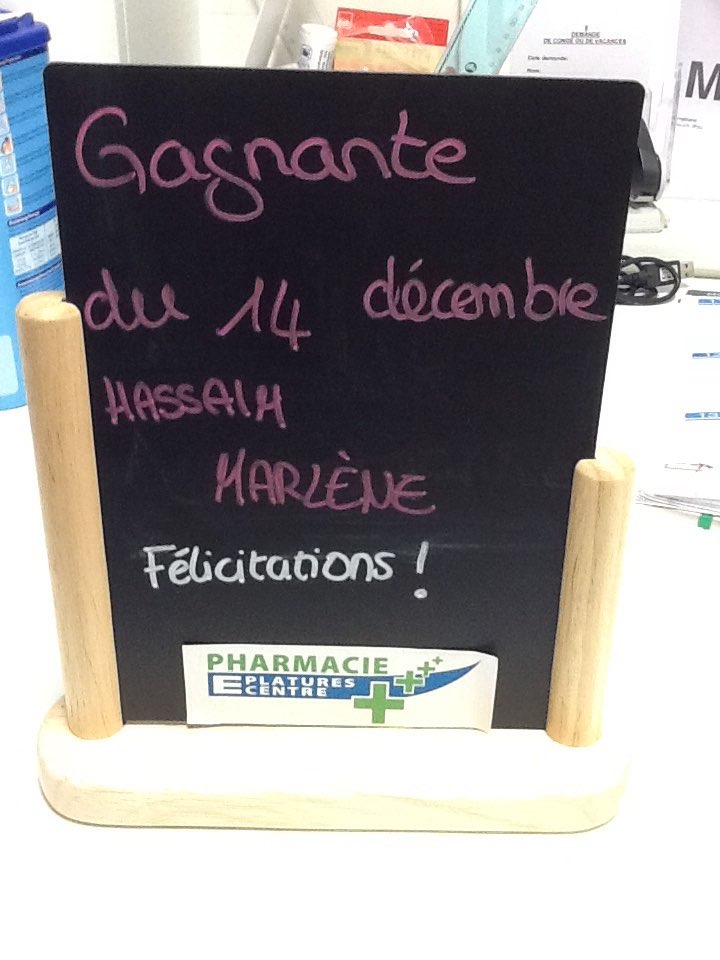 DEMANDE
DE CONGÉ OU DE VACANCES
Date demande:
M
Gagnante
du 14 décembre
HASSAIM
MARLÈNE
Félicitations !
PHARMACIE
EPLATURES
CENTRE